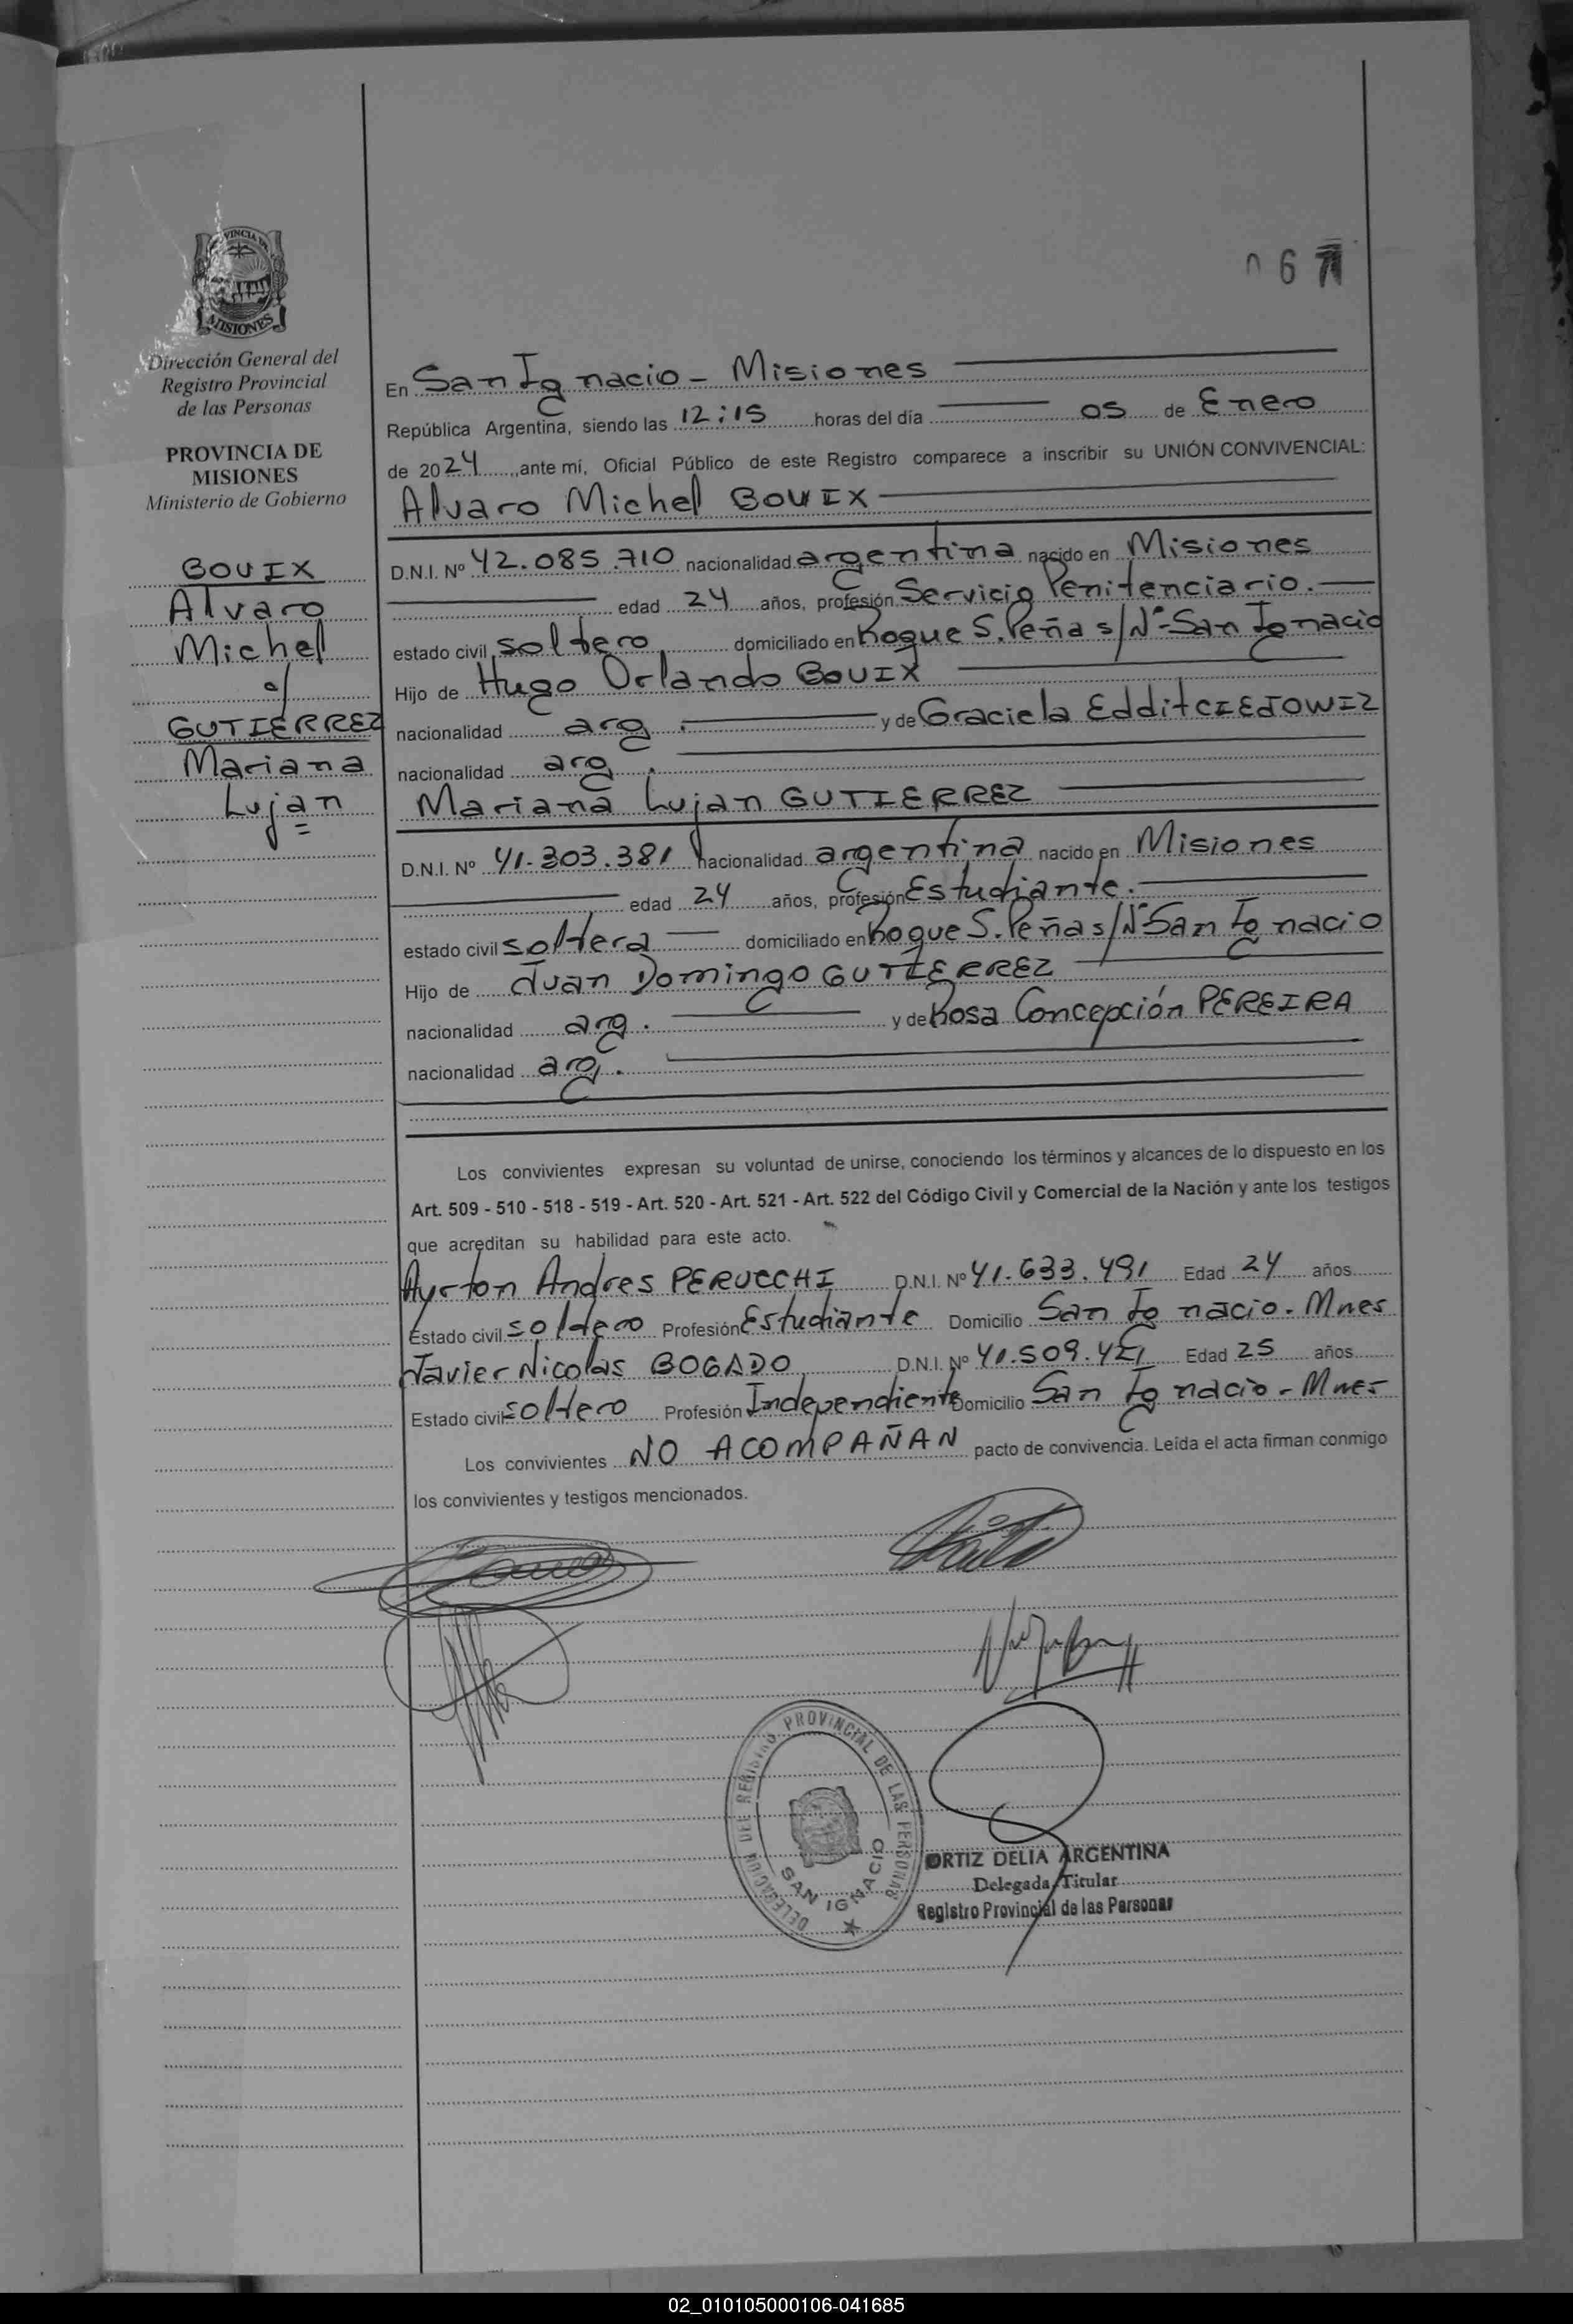 PROVINCIA DE
MISIONES
Dirección General del
Registro Provincial
de las Personas
PROVINCIA DE
MISIONES
Ministerio de Gobierno
BOUIX
Alvaro
Michel
c/
GUTIERREZ
Mariana
Lujan
=
067
En San Ignacio - Misiones
República Argentina, siendo las 12:15 horas del día 05 de Enero
de 2024, ante mí, Oficial Público de este Registro comparece a inscribir su UNIÓN CONVIVENCIAL:
Alvaro Michel BOUIX
D.N.I. Nº 42.085.710 nacionalidad argentina nacido en Misiones
edad 24 años, profesión Servicio Penitenciario.
estado civil soltero domiciliado en Roque S. Peña s/Nº-San Ignacio
Hijo de Hugo Orlando BOUIX
nacionalidad arg. y de Graciela Eddit CIEJOWIZ
nacionalidad arg.
Mariana Lujan GUTIERREZ
D.N.I. Nº 41.303.381 nacionalidad argentina nacido en Misiones
edad 24 años, profesión Estudiante.
estado civil soltera domiciliado en Roque S. Peña s/Nº San Ignacio
Hijo de Juan Domingo GUTIERREZ
nacionalidad arg. y de Rosa Concepción PEREIRA
nacionalidad arg.
Los convivientes expresan su voluntad de unirse, conociendo los términos y alcances de lo dispuesto en los
Art. 509 - 510 - 518 - 519 - Art. 520 - Art. 521 - Art. 522 del Código Civil y Comercial de la Nación y ante los testigos
que acreditan su habilidad para este acto.
Ayrton Andres PERUCCHI D.N.I. Nº 41.633.491 Edad 24 años
Estado civil soltero Profesión Estudiante Domicilio San Ignacio. Mnes
Javier Nicolas BOGADO D.N.I. Nº Edad 25 años
Estado civil soltero Profesión Independiente Domicilio San Ignacio - Mnes
Los convivientes NO ACOMPAÑAN pacto de convivencia. Leída el acta firman conmigo
los convivientes y testigos mencionados.
DELEGACION DEL REGISTRO PROVINCIAL DE LAS PERSONAS
SAN IGNACIO
ORTIZ DELIA ARGENTINA
Delegada Titular
Registro Provincial de las Personas
02_010105000106-041685